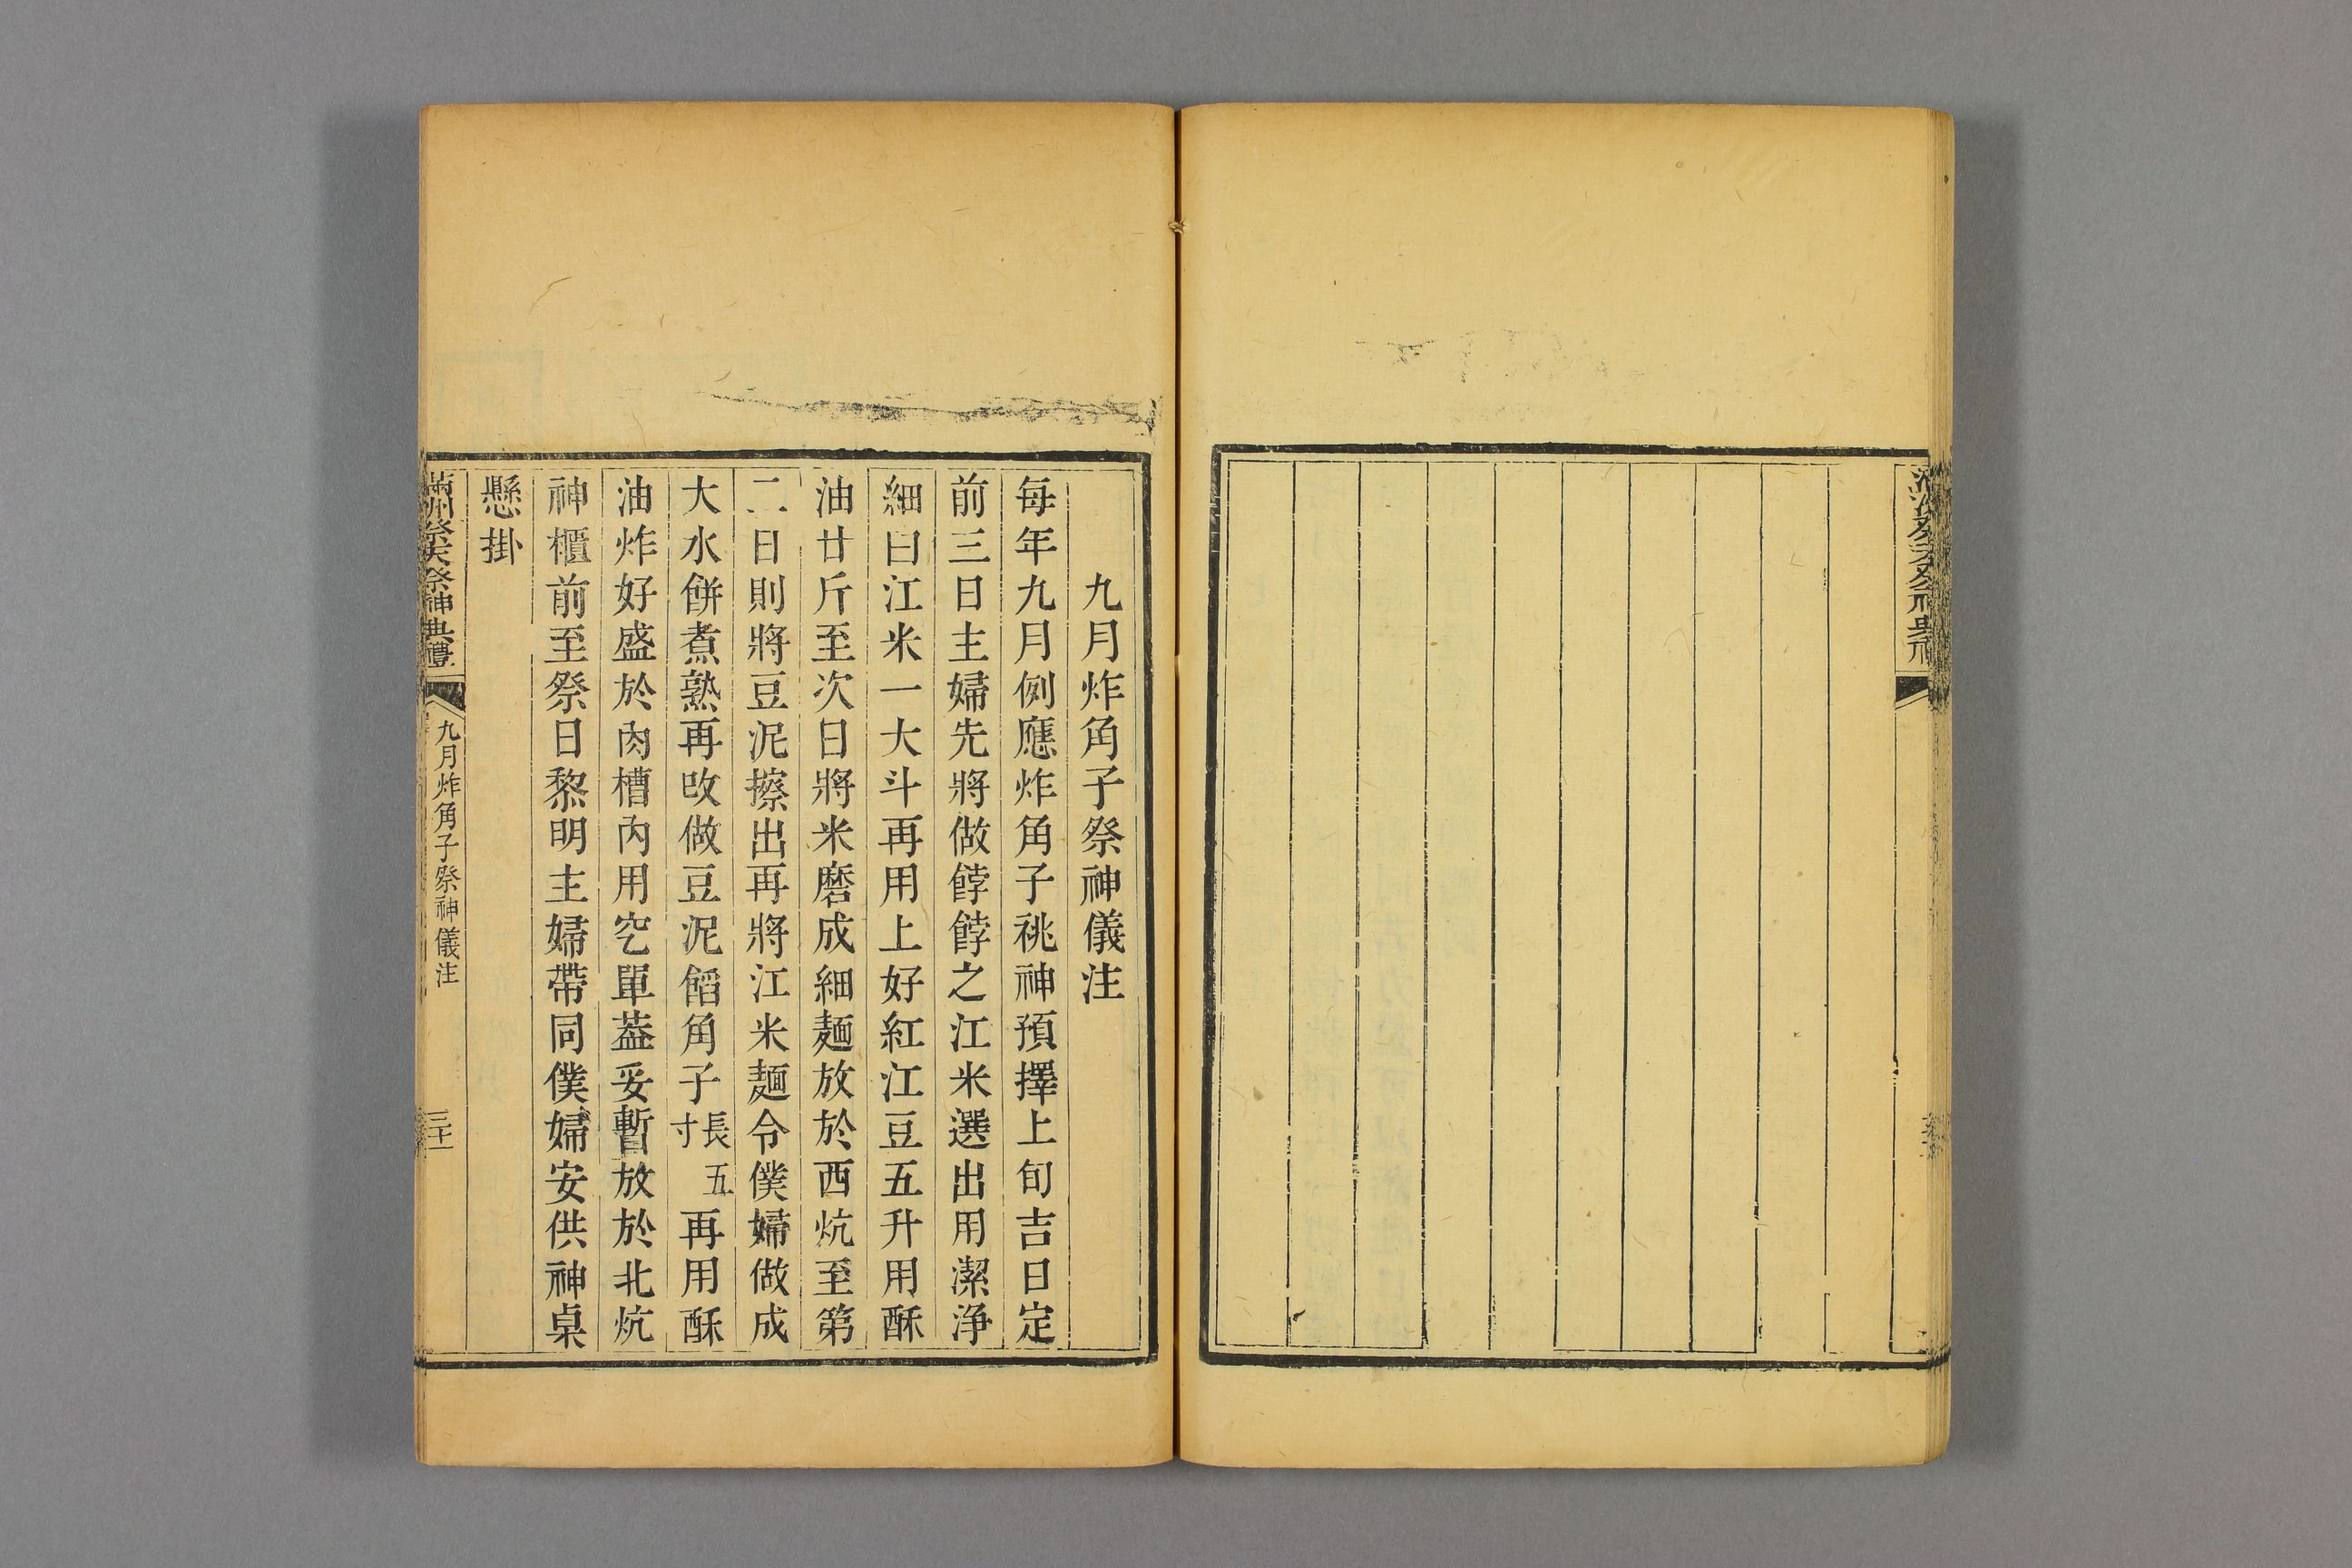 九月炸角子祭神儀注
每年九月例應炸角子祧神預擇上旬吉日定
前三日主婦先將做餑餑之江米選出用潔淨
細曰江米一大斗再用上好紅江豆五升用酥
油廿斤至次日將米磨成細麵放於西炕至第
二日則將豆泥擦出再將江米麵令僕婦做成
大水餅煮熟再改做豆泥餡角子長五寸再用酥
油炸好盛於肉槽內用空單葢妥暫放於北炕
神櫃前至祭日黎明主婦帶同僕婦安供神桌
懸掛
滿洲祭天祭神典禮
九月炸角子祭神儀注
三十一